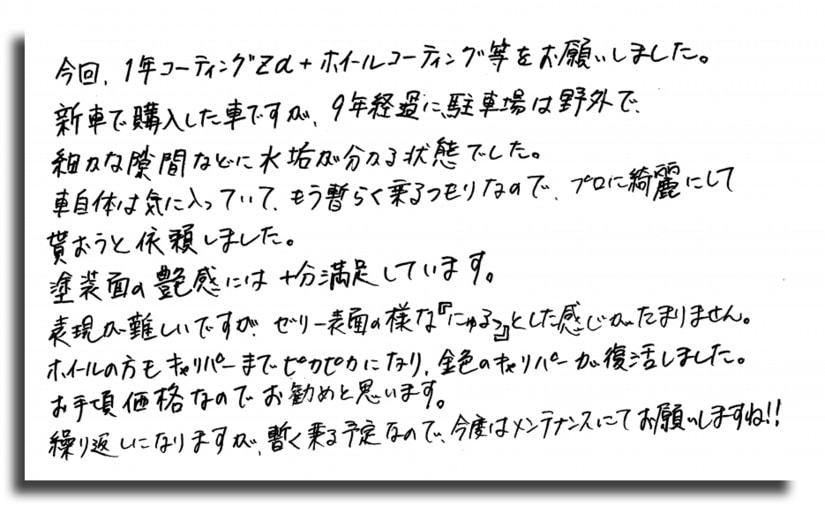 今回、1年コーティングZα+ホイールコーティング等をお願いしました。
新車で購入した車ですが、9年経過に、駐車場は野外で、
細かな隙間などに水垢が分かる状態でした。
車自体は気に入っていて、もう暫らく乗るつもりなので、プロに綺麗にして
貰おうと依頼しました。
塗装面の艶感には十分満足しています。
表現が難しいですが、ゼリー表面の様な『にゅるっ』とした感じがたまりません。
ホイールの方もキャリパーまでピカピカになり、金色のキャリパーが復活しました。
お手頃価格なのでお勧めと思います。
繰り返しになりますが、暫く乗る予定なので、今度はメンテナンスにてお願いしますね!!